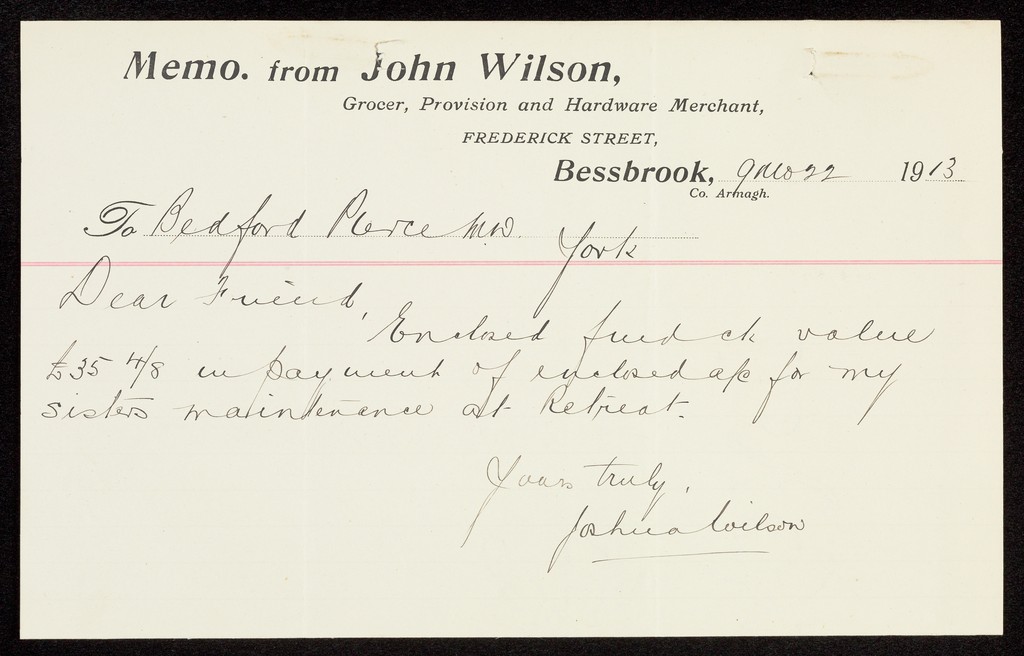 Memo. from John Wilson,
Grocer, Provision and Hardware Merchant,
FREDERICK STREET,
Bessbrook, 9 mo 22 1913
Co. Armagh.
To Bedford Pierce MD. York
Dear Friend,
Enclosed find ck value
£35 4/8 in payment of enclosed a/c for my
sisters maintenance at Retreat.
Yours truly,
Joshua Wilson